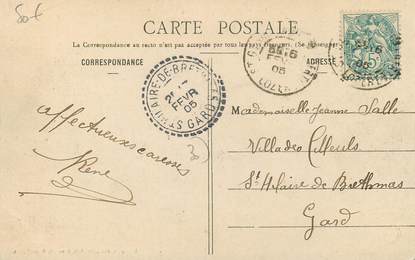 50 €
CARTE POSTALE
La Correspondance au recto n'est pas acceptée par tous les pays étrangers. (Se renseigner
CORRESPONDANCE
ADRESSE
ST HILAIRE-DE-BRETHMAS
FEVR
05
GARD
05
affectueuses caresses
René
30
Mademoiselle Jeanne Salle
Villa des Tilleuls
St Hilaire de Brethmas
Gard